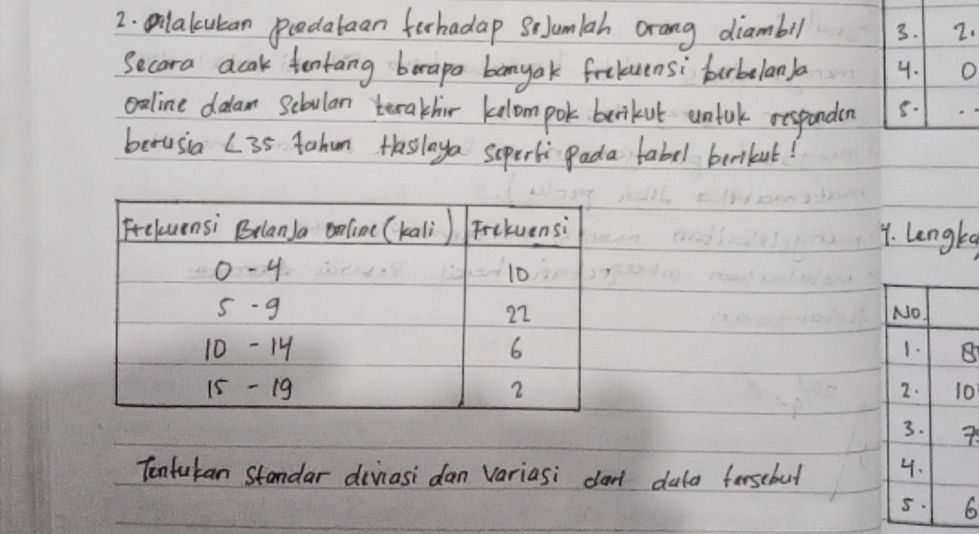 2. Dilakukan pendataan terhadap sejumlah orang diambil
Secara acak tentang berapa banyak frekuensi berbelanja
online dalam sebulan terakhir kelompok berikut untuk responden
berusia <35 tahun Hasilnya seperti pada tabel berikut!
Frekuensi Belanja online (kali) Frekuensi
0-4 10
5-9 22
10-14 6
15-19 2
Tentukan standar deviasi dan variasi dari data tersebut
3. 2.
4. 0
5. .
4. Lengka
No.
1. 8
2. 10
3. 7
4.
5. 6